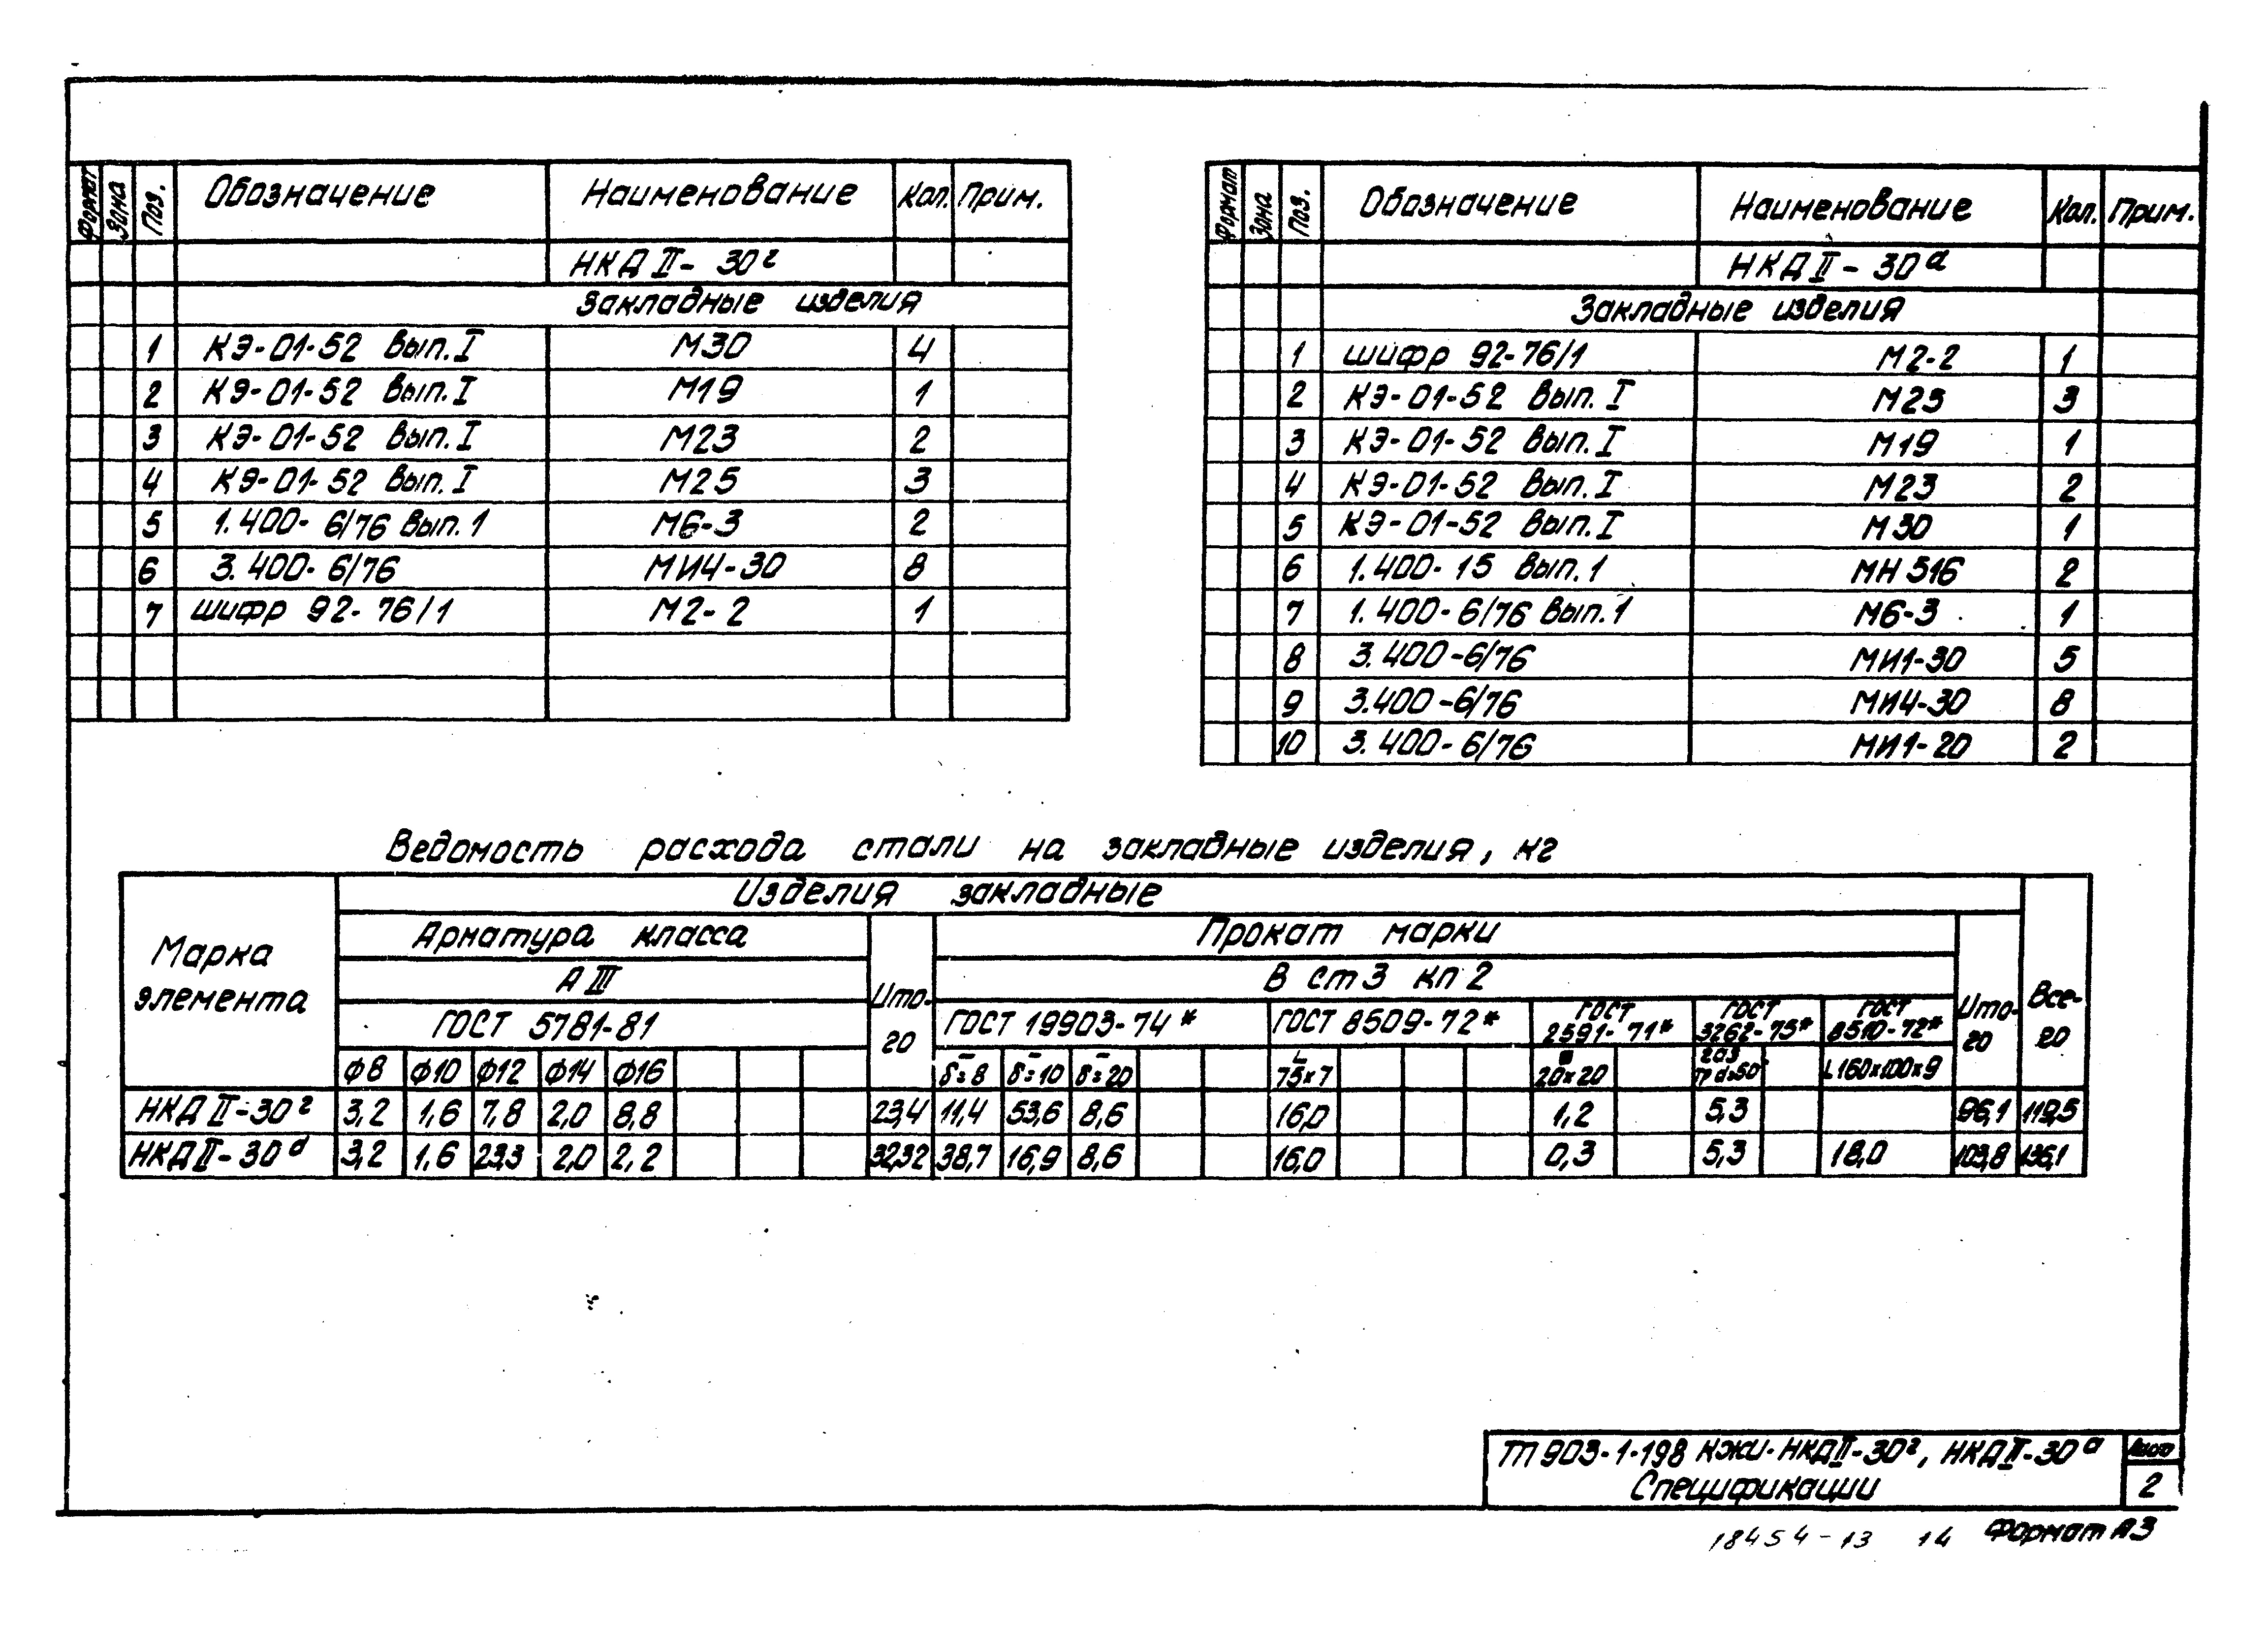 Формат Зона Поз. Обозначение Наименование Кол. Прим.
НКД II - 30г
Закладные изделия
1 КЭ-01-52 Вып. I М30 4
2 КЭ-01-52 Вып. I М19 1
3 КЭ-01-52 Вып. I М23 2
4 КЭ-01-52 Вып. I М25 3
5 1.400-6/76 Вып. 1 М6-3 2
6 3.400-6/76 МИ4-30 8
7 шифр 92-76/1 М2-2 1
Формат Зона Поз. Обозначение Наименование Кол. Прим.
НКД II - 30д
Закладные изделия
1 шифр 92-76/1 М2-2 1
2 КЭ-01-52 Вып. I М25 3
3 КЭ-01-52 Вып. I М19 1
4 КЭ-01-52 Вып. I М23 2
5 КЭ-01-52 Вып. I М30 1
6 1.400-15 Вып. 1 МН 516 2
7 1.400-6/76 Вып. 1 М6-3 1
8 3.400-6/76 МИ1-30 5
9 3.400-6/76 МИ4-30 8
10 3.400-6/76 МИ1-20 2
Ведомость расхода стали на закладные изделия, кг
Марка элемента Изделия закладные Всего
Арматура класса Итого Прокат марки Итого
А III В ст 3 кп 2
ГОСТ 5781-81 ГОСТ 19903-74* ГОСТ 8509-72* ГОСТ 2591-71* ГОСТ 3262-75* ГОСТ 8510-72*
ф8 ф10 ф12 ф14 ф16 δ=8 δ=10 δ=20 L 75×7 ■ 20×20 газ тр d=50 L160×100×9
НКД II-30г 3,2 1,6 7,8 2,0 8,8 23,4 11,4 53,6 8,6 16,0 1,2 5,3 96,1 119,5
НКД II-30д 3,2 1,6 23,3 2,0 2,2 32,32 38,7 16,9 8,6 16,0 0,3 5,3 18,0 103,8 136,1
ТП 903-1-198 КЖИ-НКДII-30г, НКДII-30д Лист
Спецификации 2
18454-13 14 Формат А3